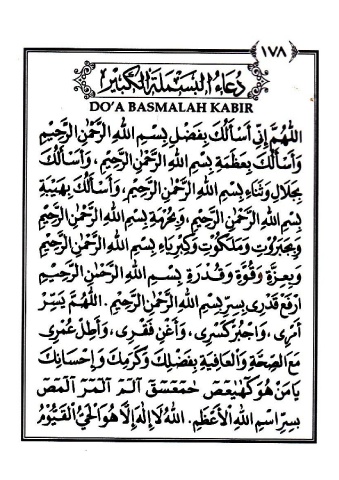 ١٧٨
دُعَاءُ الْبَسْمَلَةِ الْكَبِيْرِ
DO'A BASMALAH KABIR
اَللّٰهُمَّ إِنِّيْ أَسْأَلُكَ بِفَضْلِ بِسْمِ اللهِ الرَّحْمٰنِ الرَّحِيْمِ
وَأَسْأَلُكَ بِعَظَمَةِ بِسْمِ اللهِ الرَّحْمٰنِ الرَّحِيْمِ ، وَأَسْأَلُكَ
بِجَلَالِ وَثَنَاءِ بِسْمِ اللهِ الرَّحْمٰنِ الرَّحِيْمِ ، وَأَسْأَلُكَ بِهَيْبَةِ
بِسْمِ اللهِ الرَّحْمٰنِ الرَّحِيْمِ ، وَبِحُرْمَةِ بِسْمِ اللهِ الرَّحْمٰنِ الرَّحِيْمِ
وَبِجَبَرُوْتِ وَمَلَكُوْتِ وَكِبْرِيَاءِ بِسْمِ اللهِ الرَّحْمٰنِ الرَّحِيْمِ
وَبِعِزَّةِ وَقُوَّةِ وَقُدْرَةِ بِسْمِ اللهِ الرَّحْمٰنِ الرَّحِيْمِ
اِرْفَعْ قَدْرِيْ بِسِرِّ بِسْمِ اللهِ الرَّحْمٰنِ الرَّحِيْمِ . اَللّٰهُمَّ يَسِّرْ
أَمْرِيْ ، وَاجْبُرْ كَسْرِيْ ، وَأَغْنِ فَقْرِيْ ، وَأَطِلْ عُمْرِيْ
مَعَ الصِّحَّةِ وَالْعَافِيَةِ بِفَضْلِكَ وَكَرَمِكَ وَإِحْسَانِكَ
يَا مَنْ هُوَ كٓهٰيٰعٓصٓ حٰمٓعٓسٓقٓ الٓمٓ الٓمٓرٰ الٓمٓصٓ
بِسِرِّ اسْمِ اللهِ الْأَعْظَمِ . اَللهُ لَا إِلٰهَ إِلَّا هُوَ الْحَيُّ الْقَيُّوْمُ